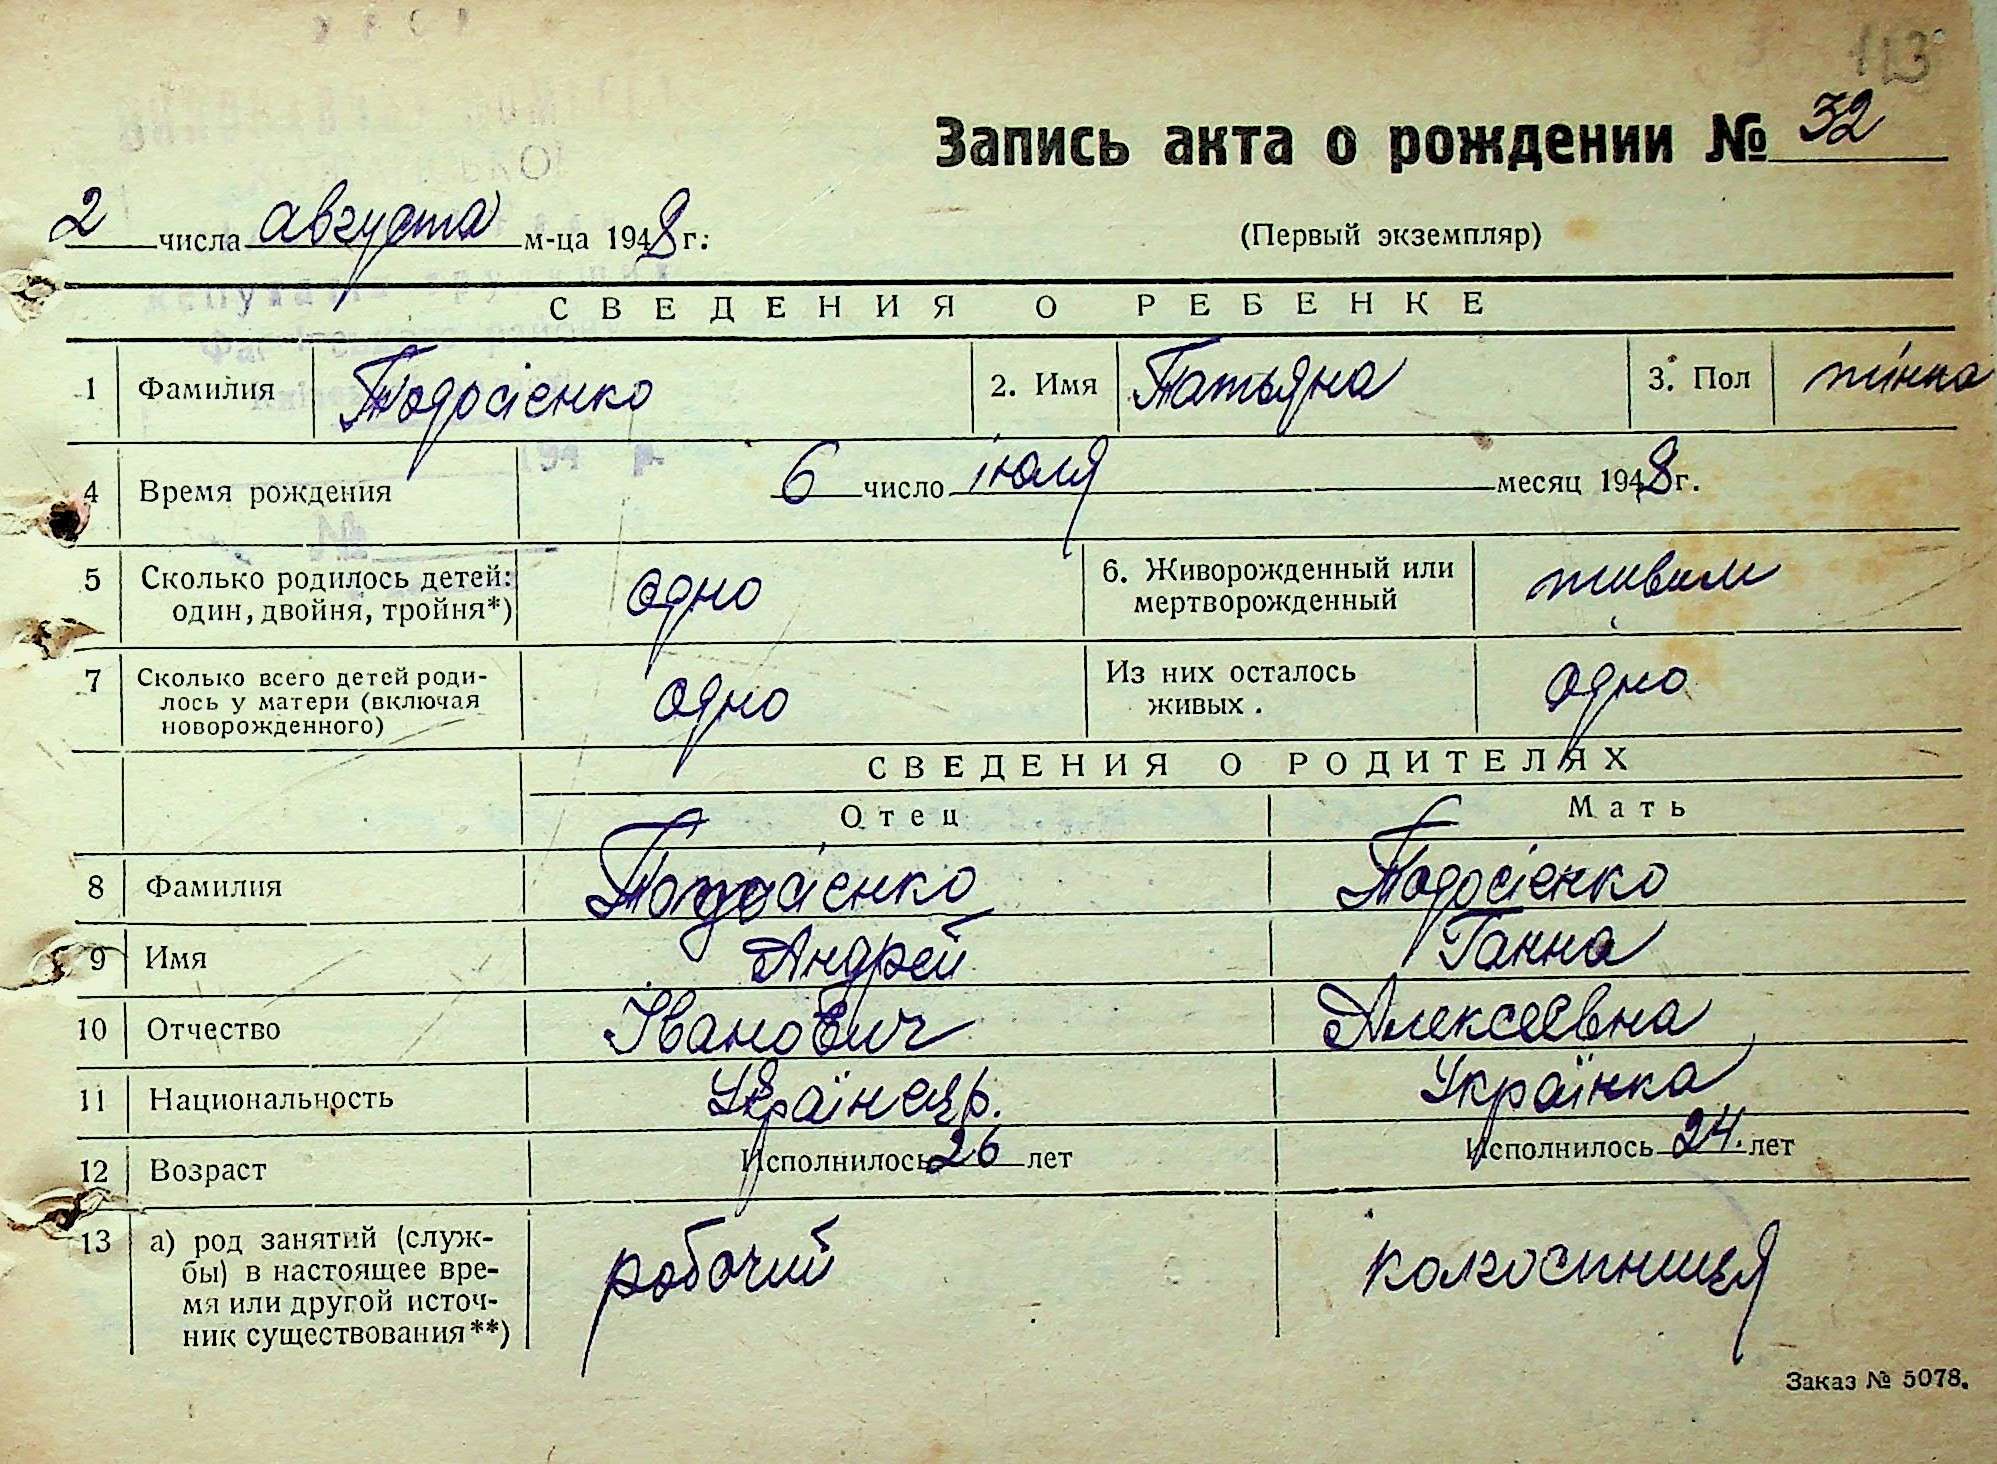 113
Запись акта о рождении № 32
2 числа августа м-ца 1948 г.
(Первый экземпляр)
СВЕДЕНИЯ О РЕБЕНКЕ
1 Фамилия Тодосієнко 2. Имя Татьяна 3. Пол жінка
4 Время рождения 6 число июля месяц 1948 г.
5 Сколько родилось детей: один, двойня, тройня*) одно 6. Живорожденный или мертворожденный живим
7 Сколько всего детей родилось у матери (включая новорожденного) одно Из них осталось живых. одно
СВЕДЕНИЯ О РОДИТЕЛЯХ
Отец Мать
8 Фамилия Тодосієнко Тодосієнко
9 Имя Андрей Ганна
10 Отчество Іванович Алексеевна
11 Национальность Українець. Українка
12 Возраст Исполнилось 26 лет Исполнилось 24. лет
13 а) род занятий (служ-
бы) в настоящее вре-
мя или другой источ-
ник существования**) робочий колгоспниця
Заказ № 5078.